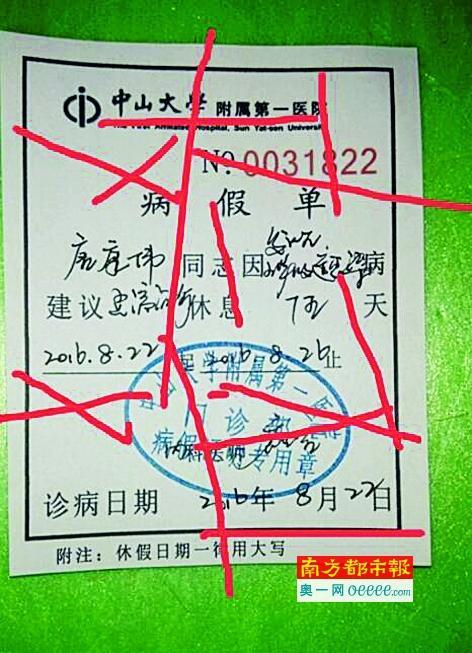 中山大学 附属第一医院
The First Affiliated Hospital, Sun Yat-sen University
No 0031822
病 假 单
同志因 病
建议 休息 天
2016.8.22 起 2016.8.26 止
附属第一医院
门诊部
病假 专用章
诊病日期 2016年8月22日
附注：休假日期一律用大写
南方都市報
奥一网 oeeee.com